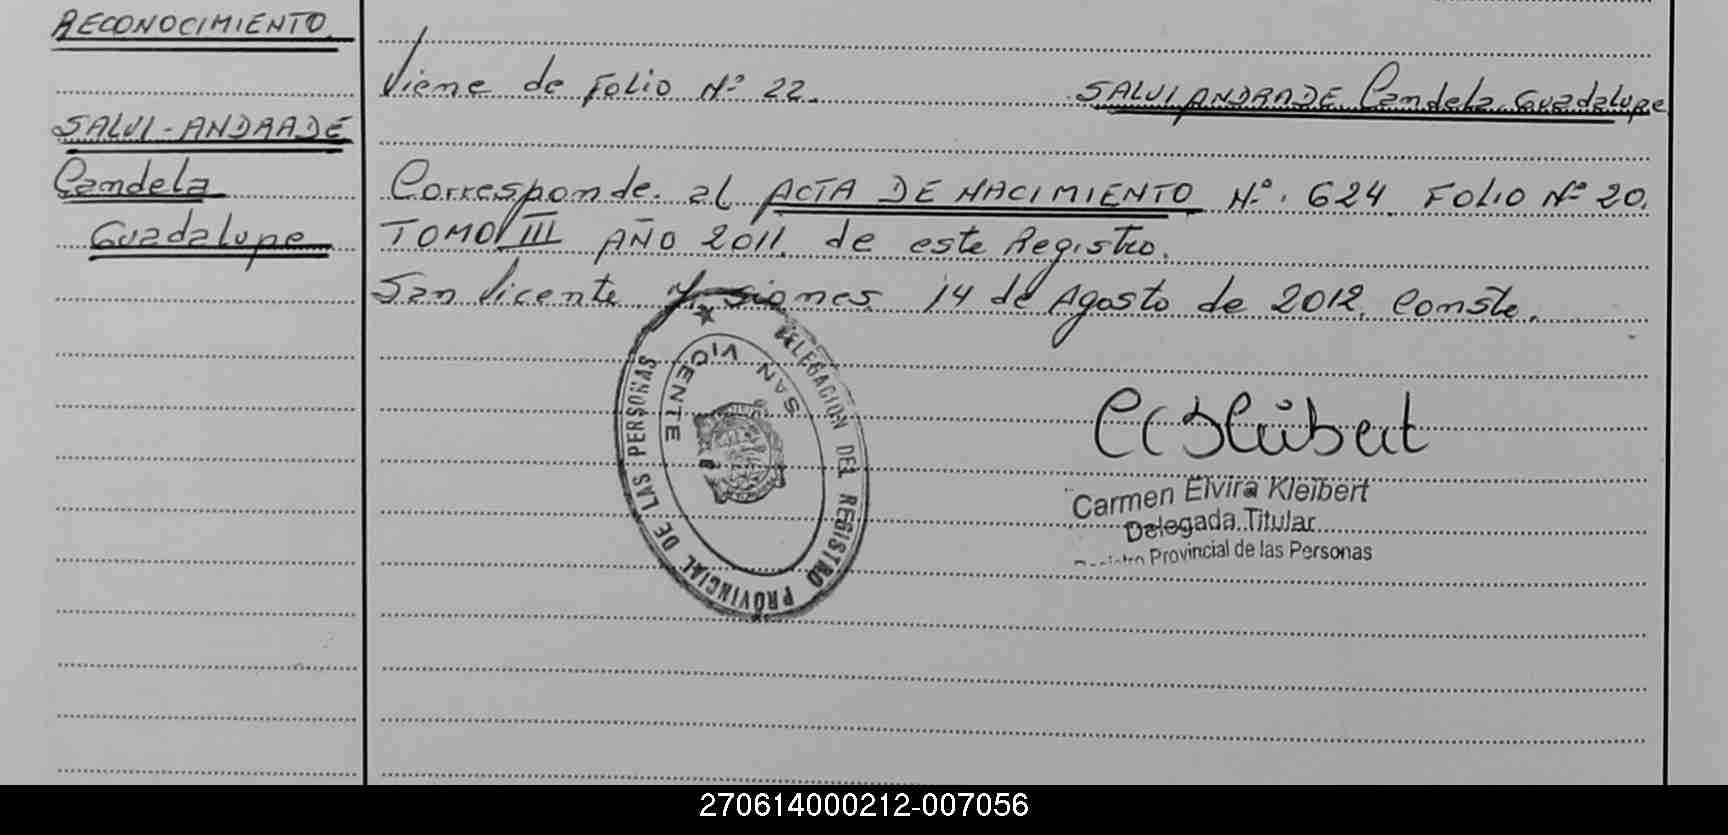 RECONOCIMIENTO
SALVI-ANDRADE
Candela
Guadalupe
Viene de Folio Nº 22. SALVI ANDRADE Candela Guadalupe
Corresponde al ACTA DE NACIMIENTO Nº 624 FOLIO Nº 20.
TOMO III AÑO 2011. de este Registro.
San Vicente Misiones 14 de Agosto de 2012. Conste.
DELEGACION DEL REGISTRO PROVINCIAL DE LAS PERSONAS
SAN VICENTE
Carmen Elvira Kleibert
Delegada Titular
Registro Provincial de las Personas
270614000212-007056